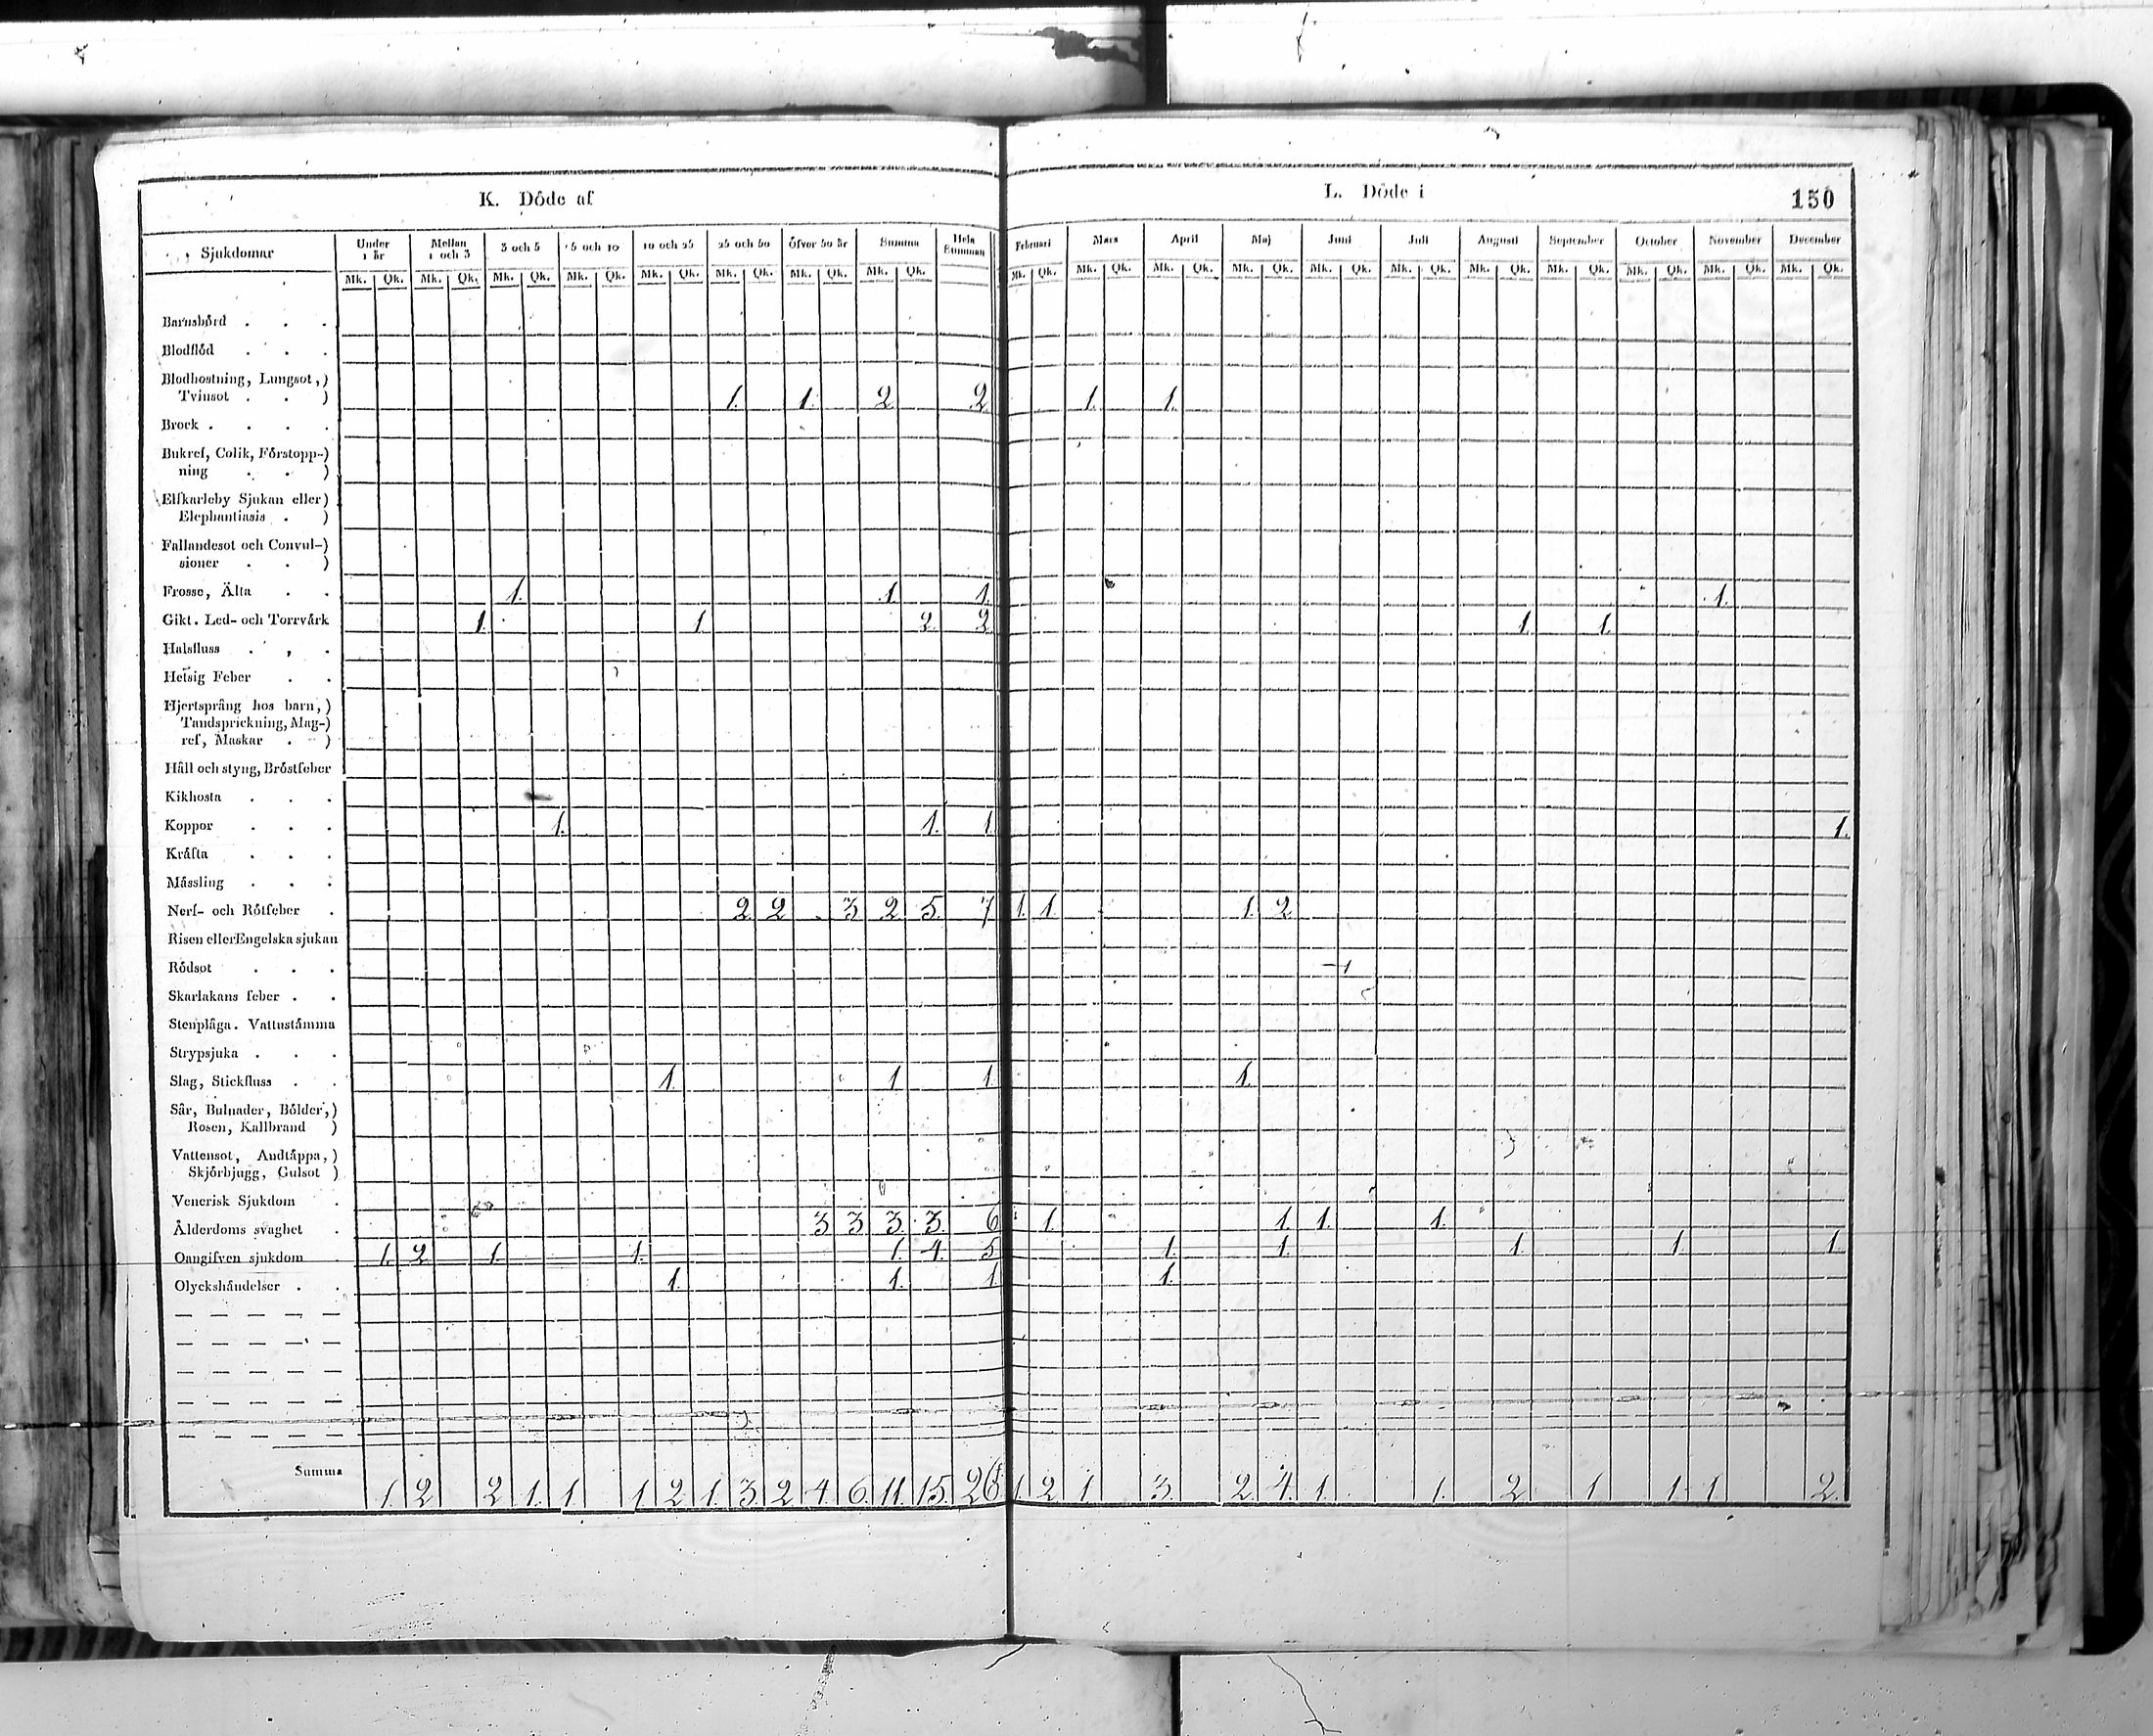 K. Döde af
L. Döde i
150
Sjukdomar Under 1 år Mellan 1 och 3 3 och 5 5 och 10 10 och 25 25 och 50 Öfver 50 år Summa Hela Summan Februari Mars April Maj Juni Juli Augusti September October November December
Mk. Qk. Mk. Qk. Mk. Qk. Mk. Qk. Mk. Qk. Mk. Qk. Mk. Qk. Mk. Qk. Mk. Qk. Mk. Qk. Mk. Qk. Mk. Qk. Mk. Qk. Mk. Qk. Mk. Qk. Mk. Qk. Mk. Qk. Mk. Qk. Mk. Qk.
Barnsbörd . . .
Blodflöd . . .
Blodhostning, Lungsot,)
Tvinsot . . ) 1. 1. 2 2 1. 1.
Brock . . . .
Bukref, Colik, Förstopp-)
ning . . )
Elfkarleby Sjukan eller)
Elephantiasis . )
Fallandesot och Convul-)
sioner . . )
Frosse, Älta . . 1. 1. 1. 1.
Gikt. Led- och Torrvärk 1. 1. 2. 2. 1. 1.
Halsfluss . , .
Hetsig Feber . .
Hjertsprång hos barn,)
Tandsprickning, Mag-)
ref, Maskar . )
Håll och styng, Bröstfeber
Kikhosta . . .
Koppor . . . 1. 1. 1. 1.
Kräfta . . .
Mässling . . .
Nerf- och Rötfeber . 2 2 3 2 5. 7 1. 1. 1. 2
Risen eller Engelska sjukan
Rödsot . . .
Skarlakans feber . .
Stenplåga. Vattustämma
Strypsjuka . . .
Slag, Stickfluss . . 1. 1 1. 1.
Sår, Bulnader, Bölder,)
Rosen, Kallbrand )
Vattensot, Andtäppa,)
Skjörbjugg, Gulsot )
Venerisk Sjukdom .
Ålderdoms svaghet . 3 3 3 3. 6 1. 1. 1. 1.
Oangifven sjukdom . 1. 2 1. 1. 1. 4. 5 1. 1. 1. 1. 1.
Olyckshändelser . . 1. 1. 1 1.
Summa 1. 2 2 1. 1 1 2 1. 3 2 4. 6. 11. 15. 26 1. 2 1 3. 2 4. 1. 1. 2. 1 1. 1 2.